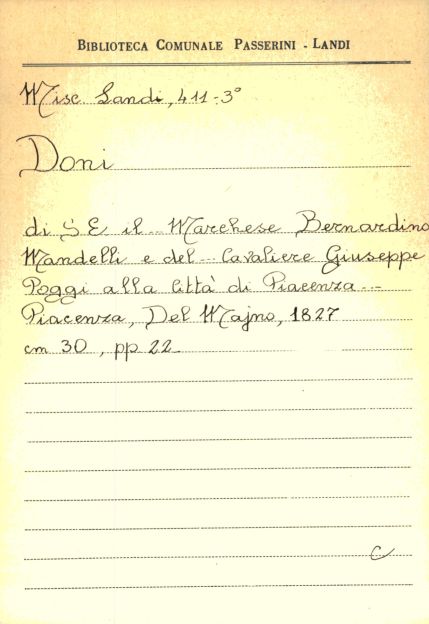 BIBLIOTECA COMUNALE PASSERINI - LANDI
Misc. Landi, 411-3°
Doni
di S. E. il ... Marchese Bernardino
Mandelli e del ... Cavaliere Giuseppe
Poggi alla Città di Piacenza ...
Piacenza, Del Majno, 1827
cm 30, pp 22
C